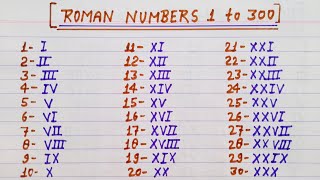 [ROMAN NUMBERS 1 to 300]
1- I 11- XI 21- XXI
2- II 12- XII 22- XXII
3- III 13- XIII 23- XXIII
4- IV 14- XIV 24- XXIV
5- V 15- XV 25- XXV
6- VI 16- XVI 26- XXVI
7- VII 17- XVII 27- XXVII
8- VIII 18- XVIII 28- XXVIII
9- IX 19- XIX 29- XXIX
10- X 20- XX 30- XXX